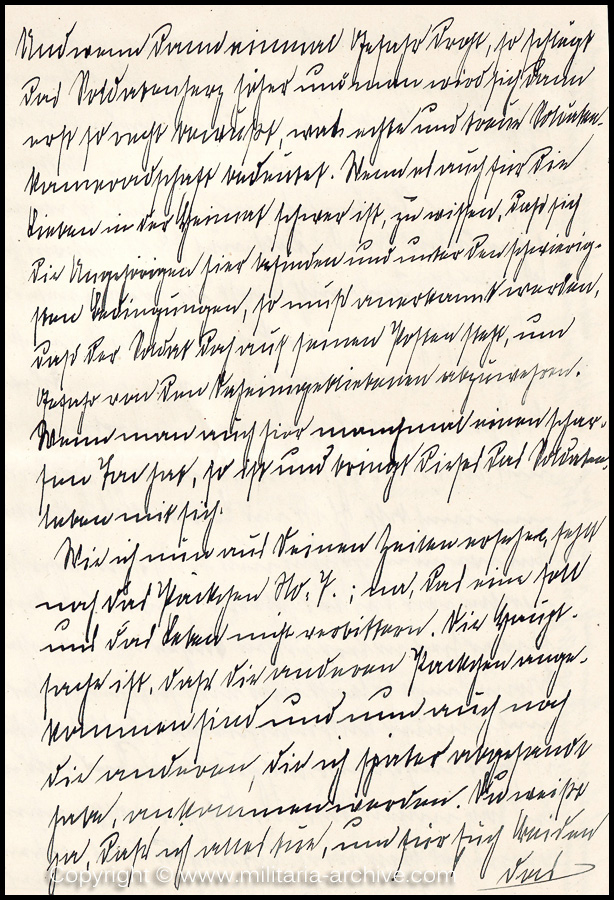 Und wenn dann einmal Gefahr droht, so schlägt
das Soldatenherz höher und man wird sich dann
erst so recht bewußt, was echte und treue Soldaten-
kameradschaft bedeutet. Wenn es auch für die
Lieben in der Heimat schwer ist, zu wissen, daß sich
die Angehörigen hier befinden und unter den schwierig-
sten Bedingungen, so muß anerkannt werden,
daß der Soldat das auf seinem Posten steht, um
Gefahr von den Daheimgebliebenen abzuwehren.
Wenn man auch hier manchmal einen schar-
fen Ton hat, so ist und bringt dieses das Soldaten-
leben mit sich.
Wie ich nun aus Deinen Zeilen ersehe, fehlt
noch das Päckchen No. 7.; na, das eine soll
uns das Leben nicht verbittern. Die Haupt-
sache ist, daß die anderen Päckchen ange-
kommen sind und nun auch noch
die anderen, die ich später abgesandt
habe, ankommen werden. Du weißt
ja, daß ich alles tue, um hier Euch beiden
das
Copyright © www.militaria-archive.com